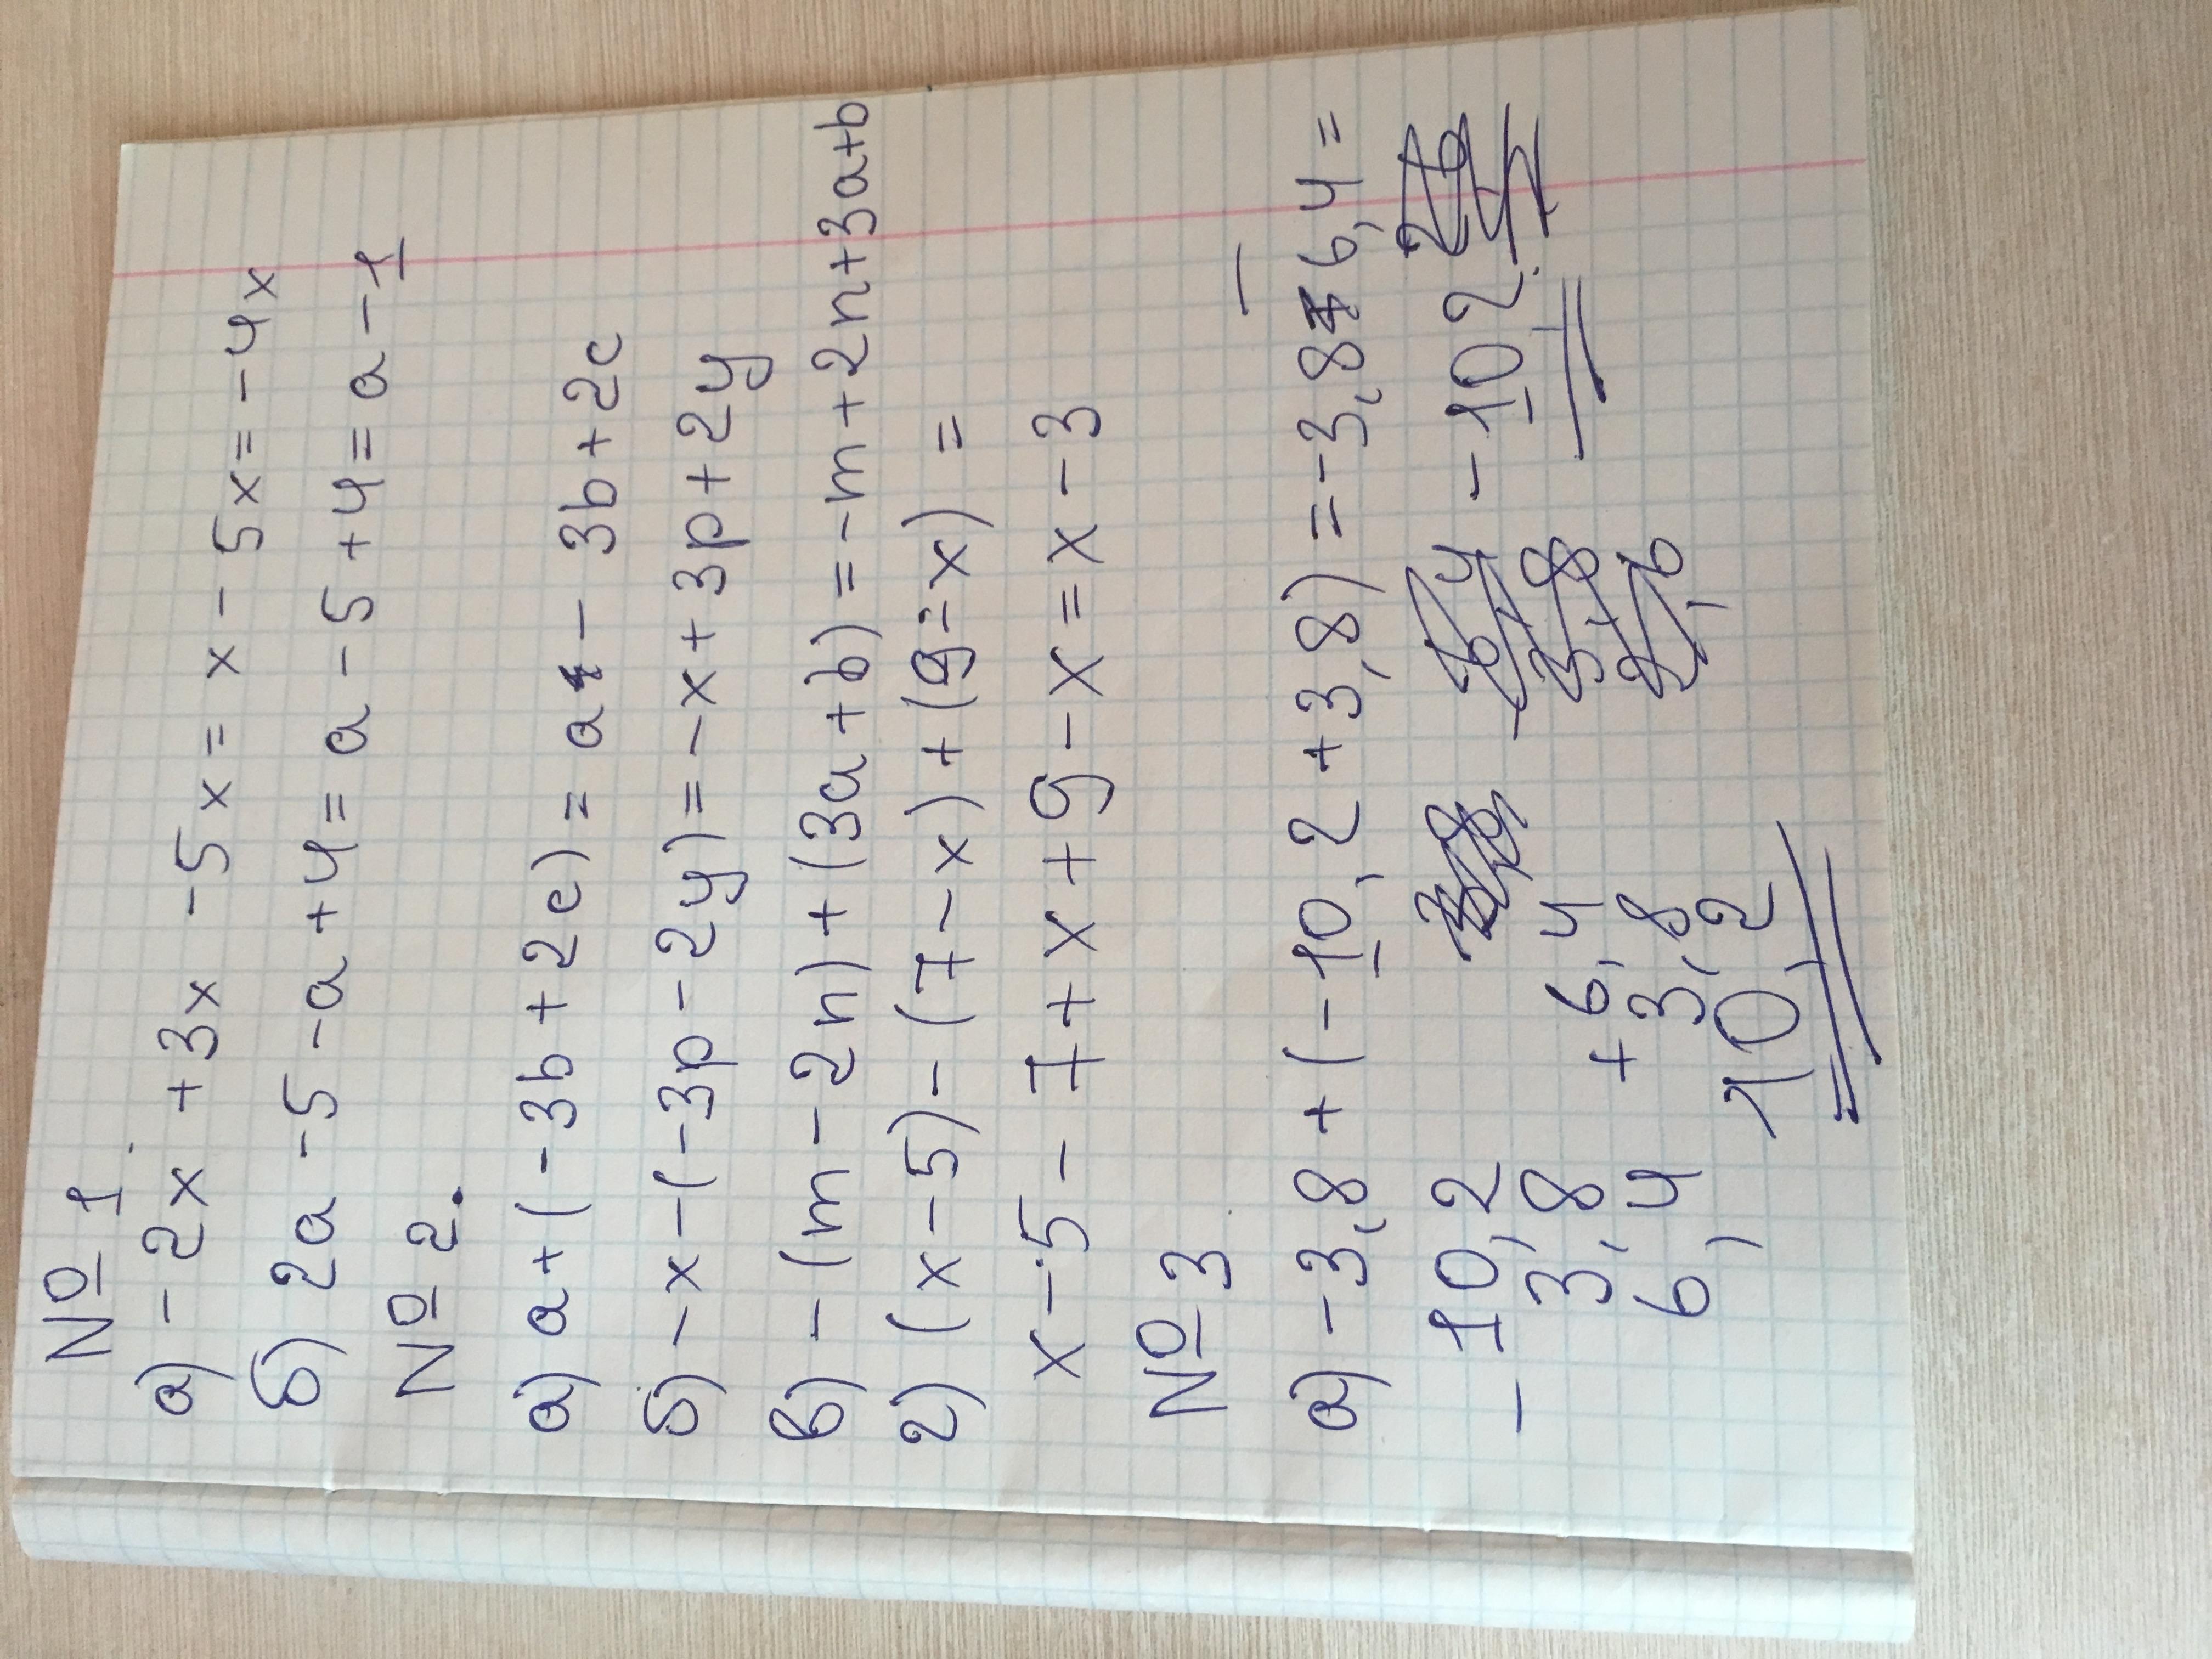 № 1
а) -2x +3x -5x = x - 5x = -4x
б) 2a -5 -a +4 = a -5 +4 = a -1
№ 2.
а) a+(-3b +2c) = a - 3b+2c
б) -x-(-3p -2y) = -x+3p+2y
в) -(m-2n)+(3a+b)=-m+2n+3a+b
г) (x-5)-(7-x)+(9-x) =
x-5-7+x+9-x=x-3
№ 3
а) -3,8+(-10,2+3,8)=-3,8-6,4=
-10,2
3,8
6,4
+6,4
3,8
10,2
-10,2